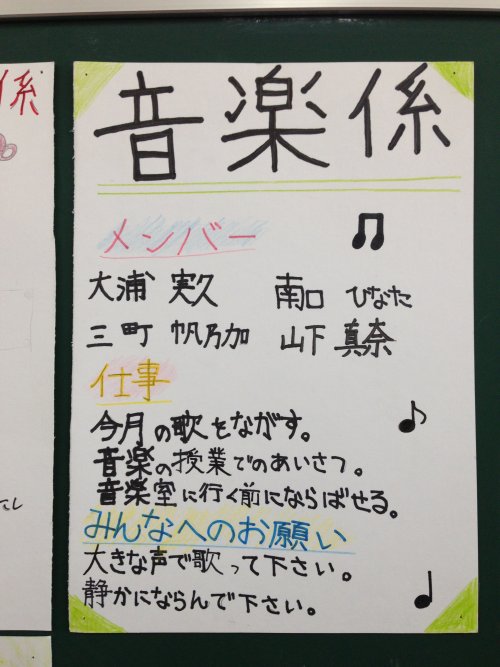 音楽係
メンバー
大浦 実久 南口 ひなた
三町 帆乃加 山下 真奈
仕事
今月の歌をながす。
音楽の授業でのあいさつ。
音楽室に行く前にならばせる。
みんなへのお願い
大きな声で歌って下さい。
静かにならんで下さい。
係